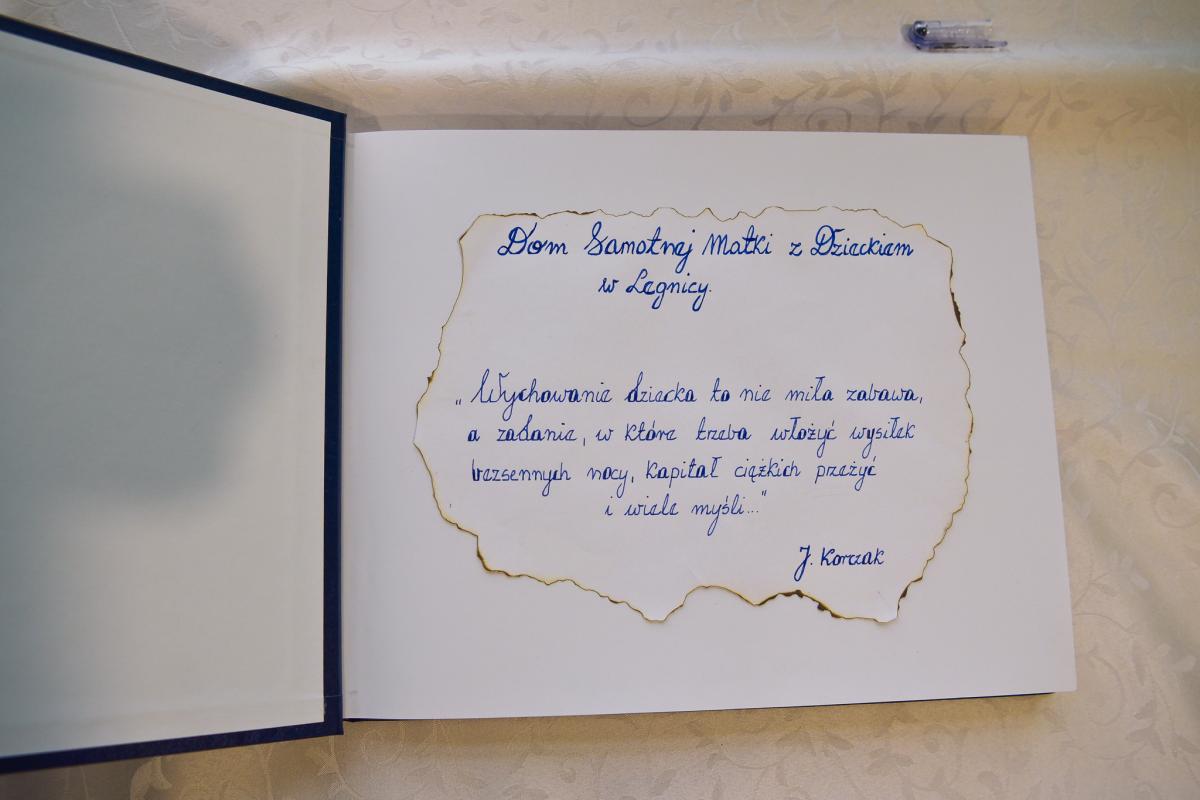 Dom Samotnej Matki z Dzieckiem
w Legnicy.
„Wychowanie dziecka to nie miła zabawa,
a zadanie, w które trzeba włożyć wysiłek
bezsennych nocy, kapitał ciężkich przeżyć
i wiele myśli..."
J. Korczak